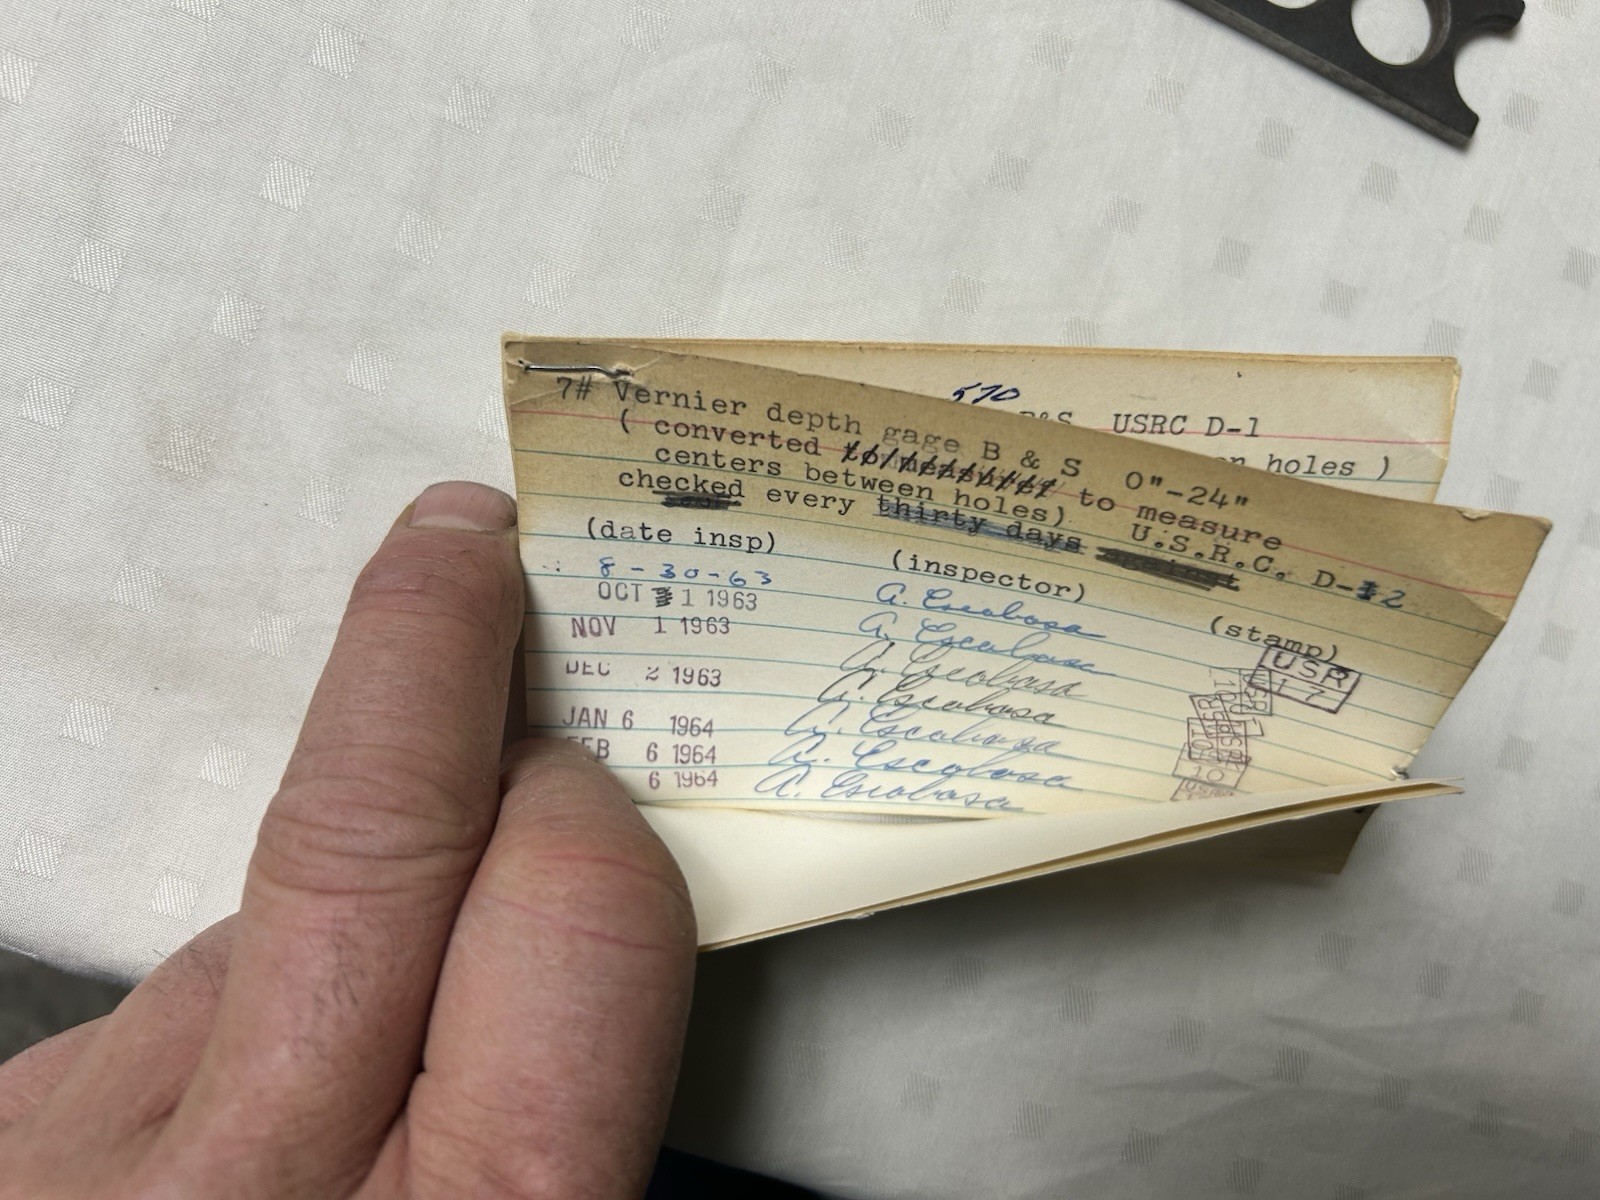 570
B&S USRC D-1
on holes )
7# Vernier depth gage B & S 0"-24"
( converted to measure
centers between holes) U.S.R.C. D-12
checked every thirty days
(date insp) (inspector) (stamp)
8-30-63 A. Escobosa
OCT 1 1963 A. Escobosa
NOV 1 1963 A. Escobosa
DEC 2 1963 A. Escobosa
JAN 6 1964 A. Escobosa
FEB 6 1964 A. Escobosa
6 1964 A. Escobosa
USR
17
10